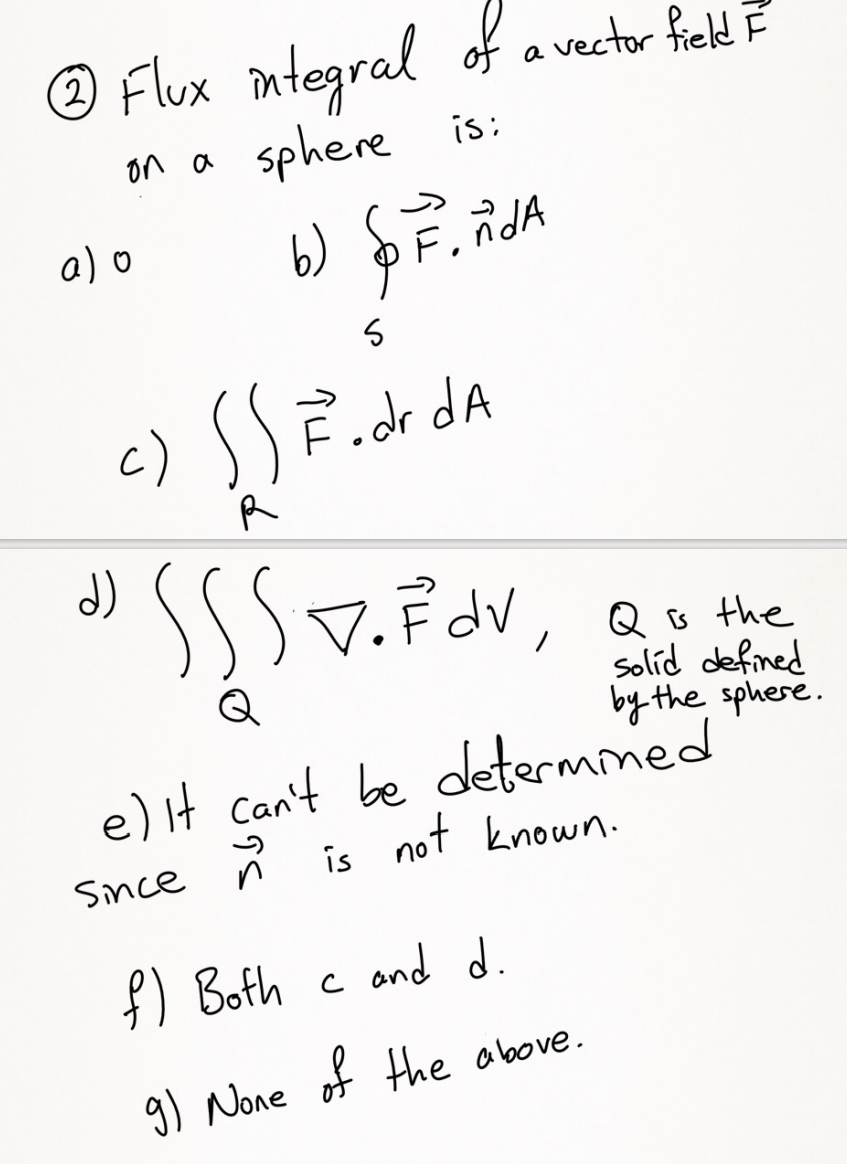 ② Flux integral of a vector field F⃗
on a sphere is:
a) 0 b) ∮ F⃗ . n⃗ dA
S
c) ∬ F⃗ . dr dA
R
d) ∭ ∇ . F⃗ dV , Q is the
solid defined
by the sphere.
Q
e) It can't be determined
since n⃗ is not known.
f) Both c and d.
g) None of the above.